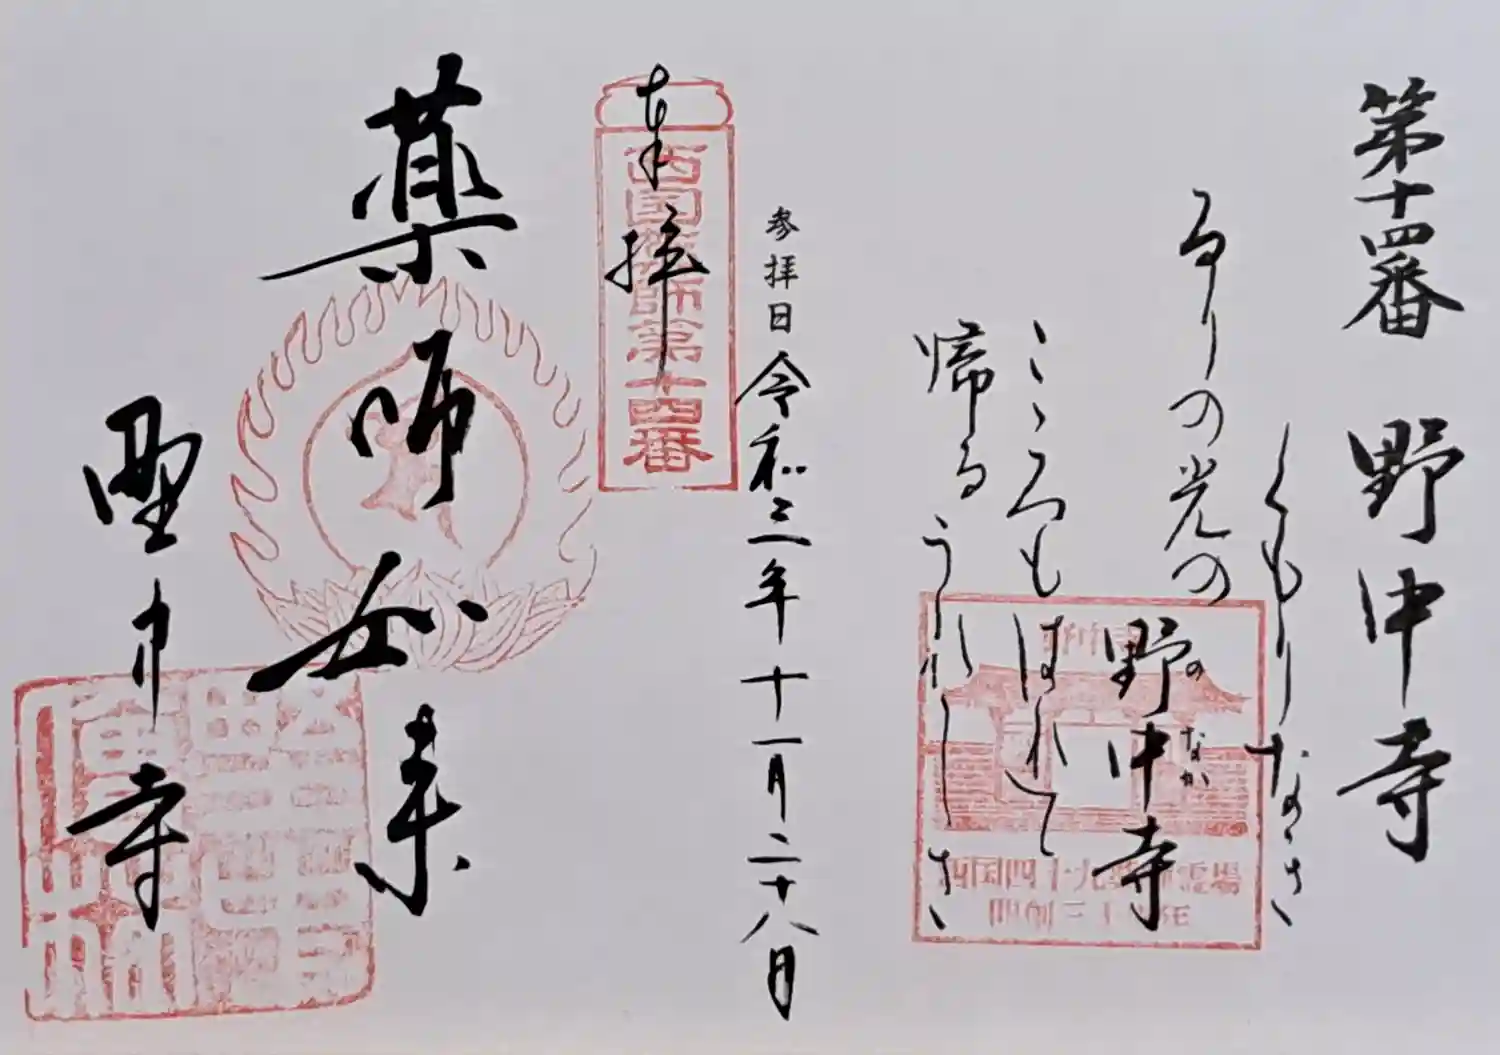 第十四番 野中寺
くもりなき
るりの光の
野中寺
のなか
こゝろもはれて
帰るうれしさ
参拝日 令和三年十一月二十八日
奉拝
西国薬師第十四番
薬師如来
野中寺
西国四十九薬師霊場